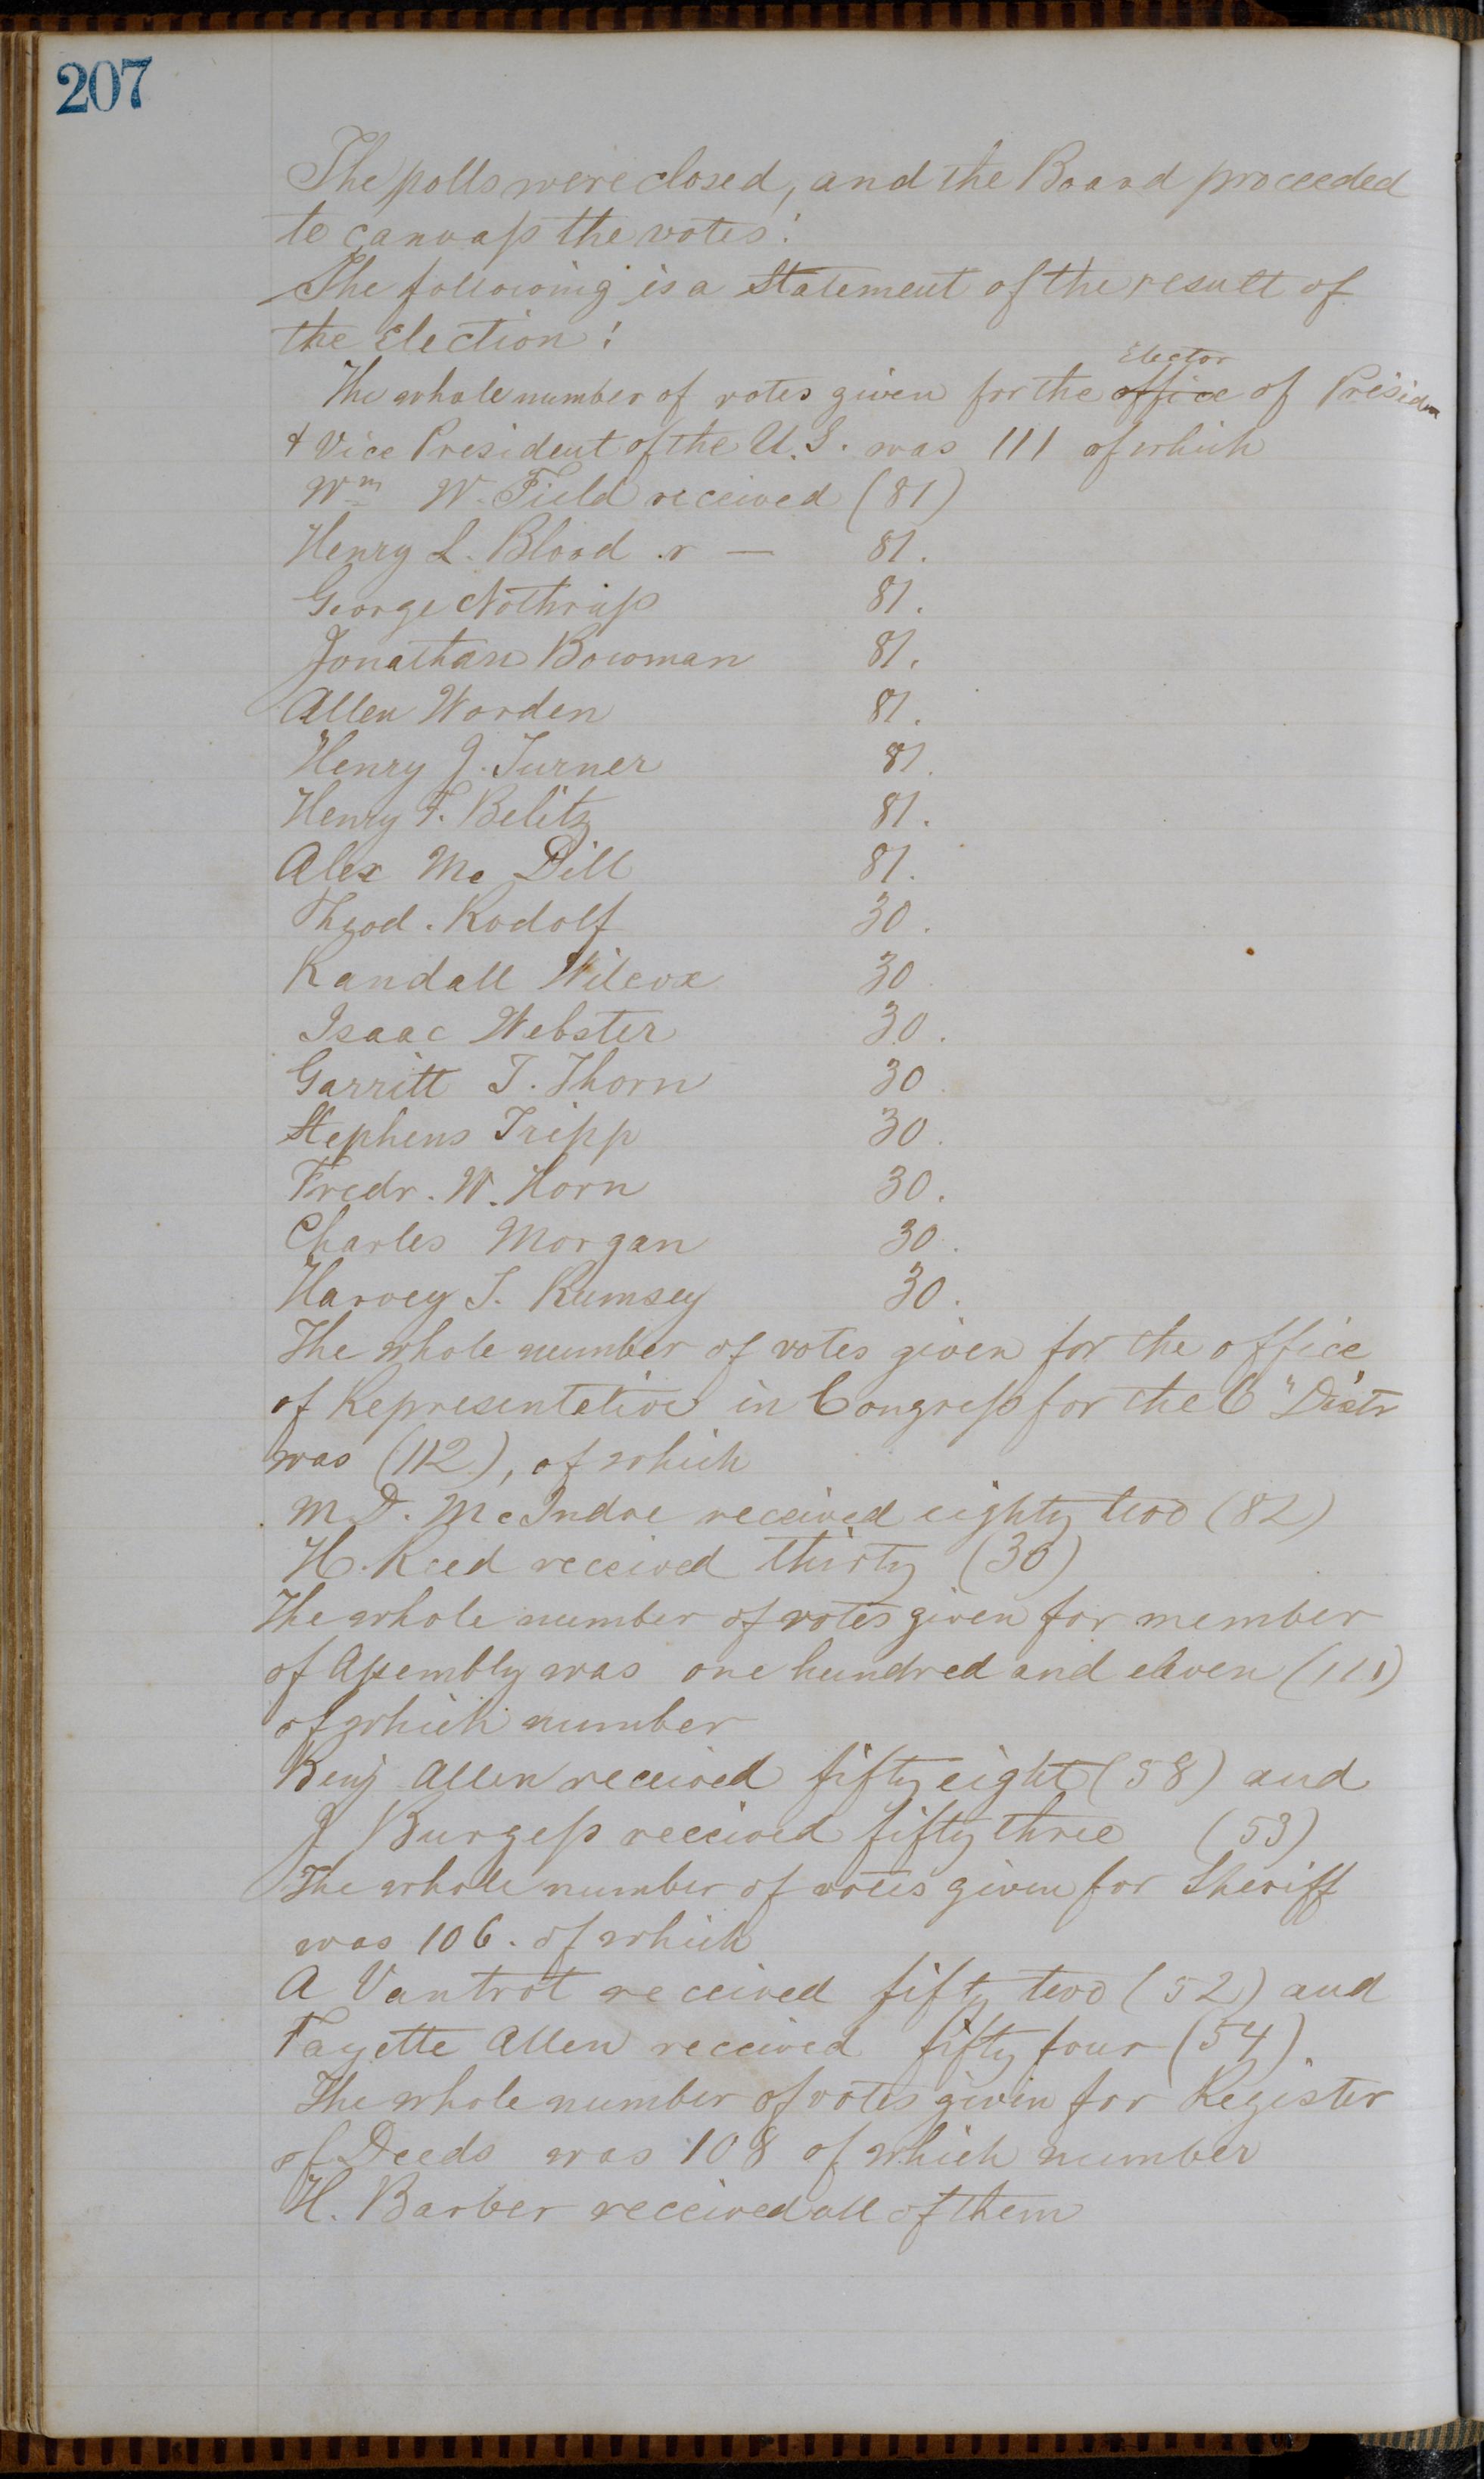 207
The polls were closed, and the Board proceeded
to canvass the votes!
The following is a Statement of the result of
the Election!
Elector
The whole number of votes given for the office of Presiden
& Vice President of the U.S. was 111 of which
Wm W. Field received (81)
Henry L. Blood .r — 81.
George Nothrup 81.
Jonathan Bowman 81.
Allen Worden 81.
Henry J. Turner 81.
Henry F. Belitz 81.
Alex Mc Dill 81.
Theod. Rodolf 30.
Randall Wilcox 30
Isaac Webster 30.
Garritt T. Thorn 30
Stephens Tripp 30.
Fredr. W. Horn 30.
Charles Morgan 30.
Harvey T. Rumsey 30.
The whole number of votes given for the office
of Representetive in Congress for the 6" Distr
was (112), of which
M D. McIndoe received eighty two (82)
H. Reed received thirty (30)
The whole number of votes given for member
of Assembly was one hundred and eleven (111)
of which number
Benj Allen received fifty eight (58) and
J Burgess received fifty three (53)
The whole number of votes given for Sheriff
was 106. of which
A Vantrot received fifty two (52) and
Fayette Allen received fifty four (54).
The whole number of votes given for Register
of Deeds was 108 of which number
H. Barber received all of them